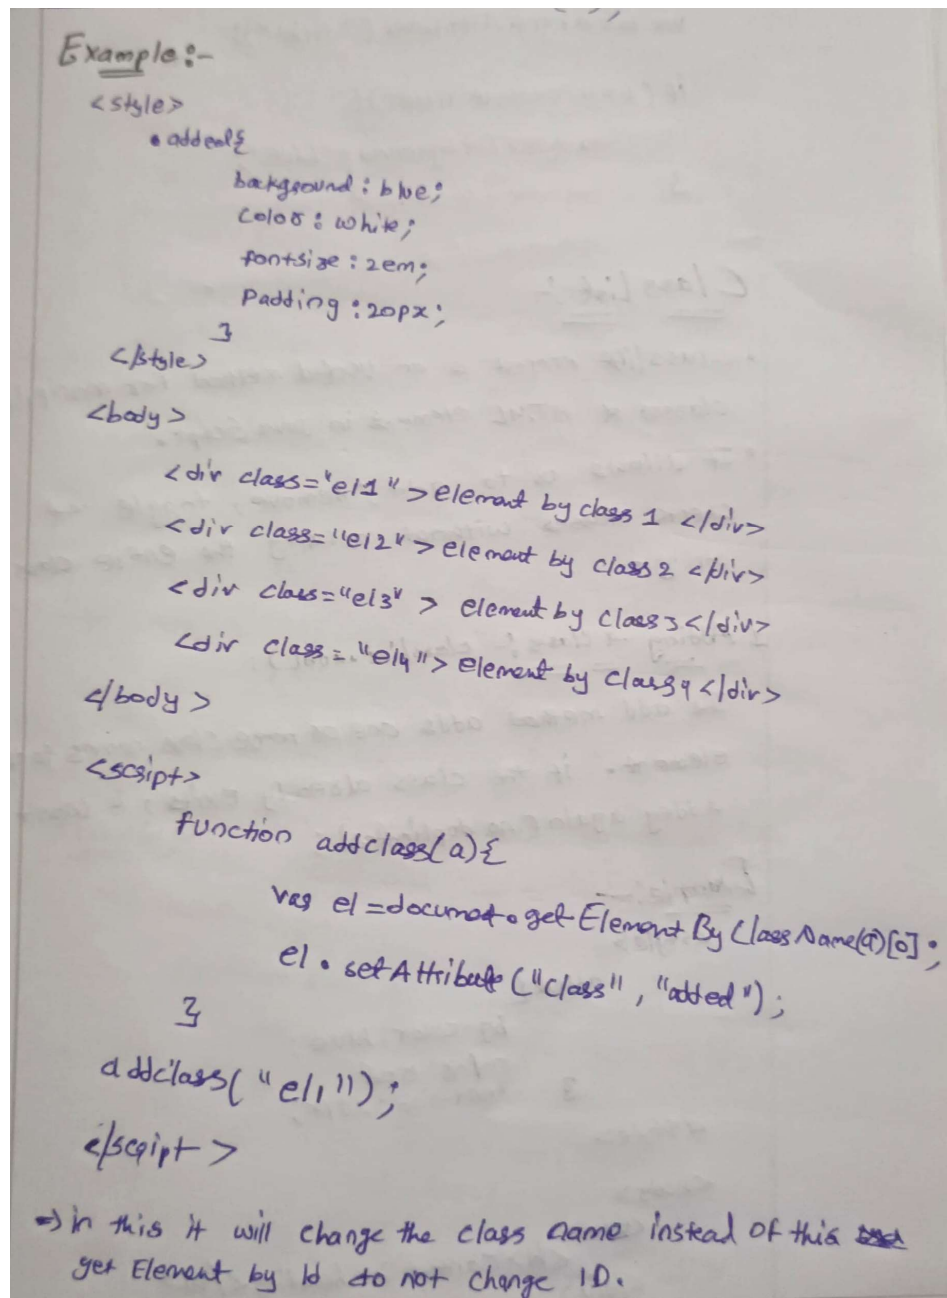 Example:-
<style>
.added{
background: blue;
Color: white;
fontsize: 2em;
Padding: 20px;
}
</style>
<body>
<div class="el1"> element by class 1 </div>
<div class="el2"> element by class 2 </div>
<div class="el3"> element by class 3 </div>
<div class="el4"> element by class 4 </div>
</body>
<script>
function addclass(a){
var el = document.getElementByClassName(a)[0];
el.setAttribute("class", "added");
}
addclass("el1");
</script>
⇒ in this it will change the class name instead of this
get Element by Id to not change ID.